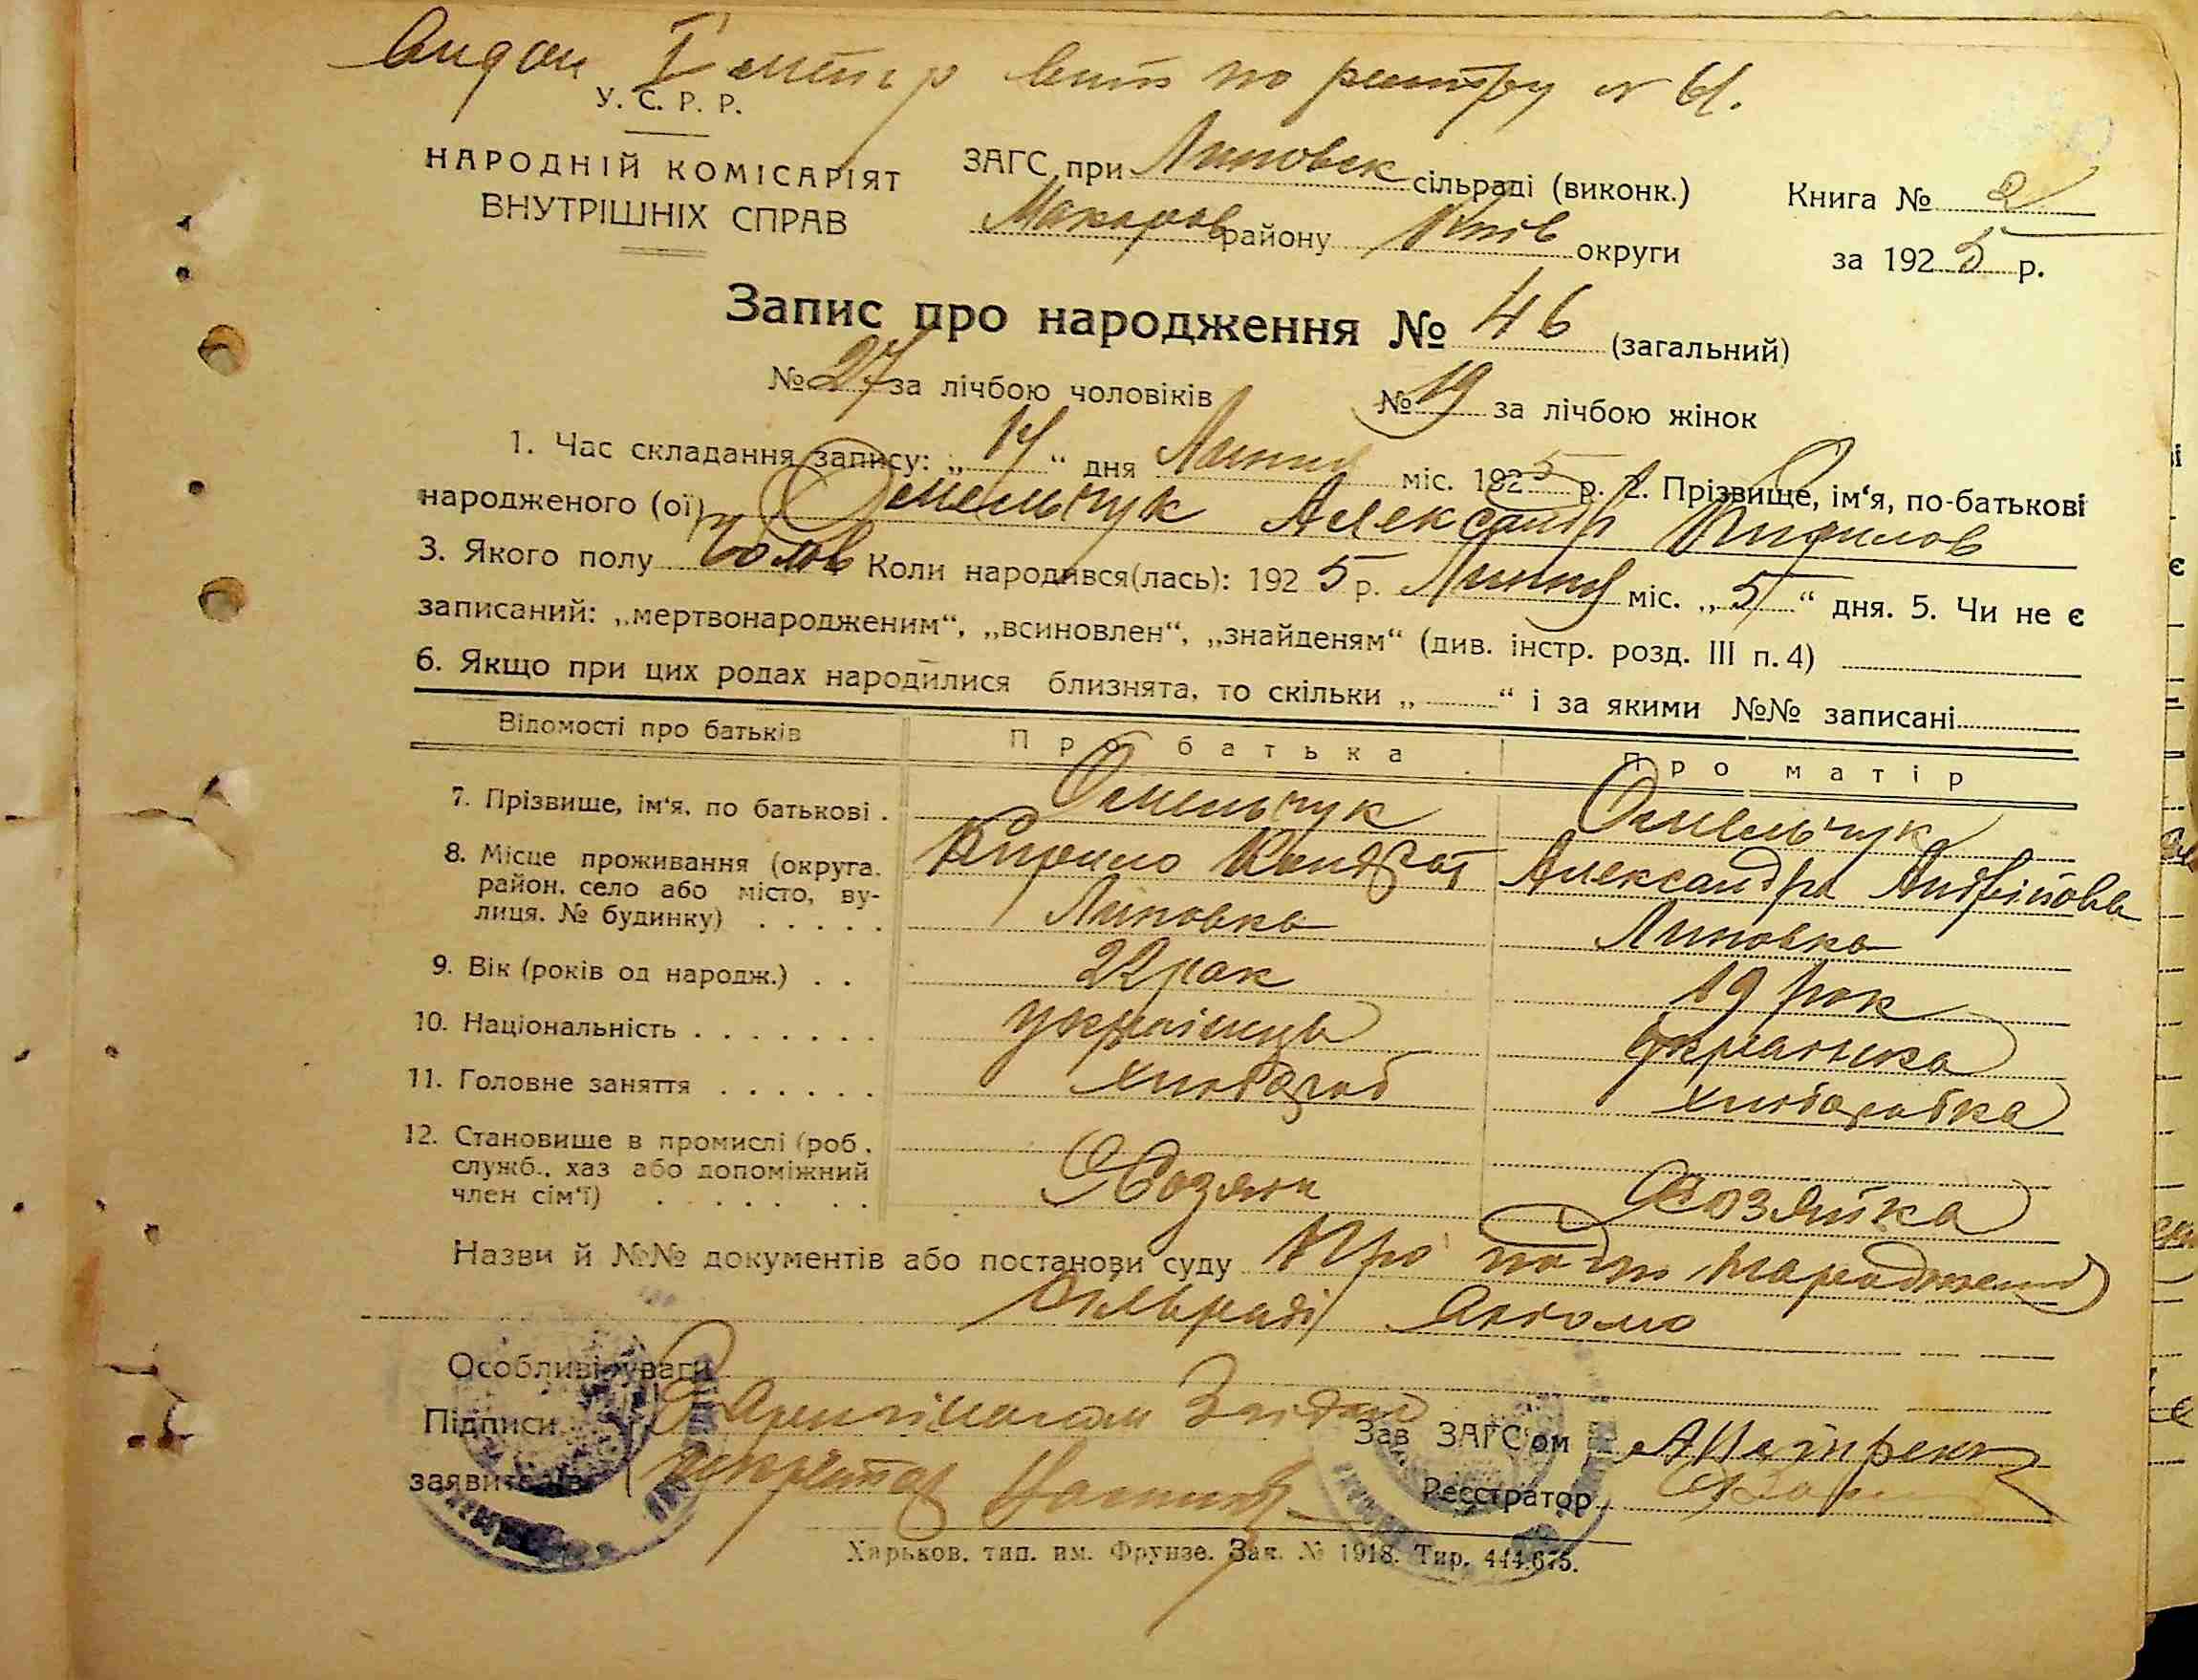 Видан метр по реестру № 61.
У. С. Р. Р.
НАРОДНІЙ КОМІСАРІЯТ
ВНУТРІШНІХ СПРАВ
ЗАГС при Липовск сільраді (виконк.)
Макаров району Київ округи
Книга № 2
за 1925 р.
Запис про народження № 46 (загальний)
№ 27 за лічбою чоловіків № 19 за лічбою жінок
1. Час складання запису: „14“ дня Липня міс. 1925 р. 2. Прізвище, ім‘я, по-батькові
народженого (ої) Омельчук Александр Кирилов
3. Якого полу Чолов Коли народився(лась): 1925 р. Липня міс. „5“ дня. 5. Чи не є
записаний: „мертвонародженим“, „всиновлен“, „знайденям“ (див. інстр. розд. III п. 4)
6. Якщо при цих родах народилися близнята, то скільки „ “ і за якими №№ записані
Відомості про батьків Про батька Про матір
7. Прізвище, ім‘я, по батькові . Омельчук Омельчук
Кирило Кондрат Александра Андрійова
8. Місце проживання (округа, район, село або місто, ву-
лиця, № будинку) . . . . . Липовка Липовка
9. Вік (років од народж.) . . 22 рок 19 рок
10. Національність . . . . . . . українць украінка
11. Головне заняття . . . . . . хлібороб хліборобка
12. Становище в промислі (роб.,
служб., хаз або допоміжний
член сім‘ї) . . . . . . . Хозяін Хозяйка
Назви й №№ документів або постанови суду Про народження
Сільраді
Особливі уваги
Підписи З Орегіналом Згідно Зав ЗАГС‘ом
заявителів секретар Реєстратор
Харьков, тип. им. Фрунзе. Зак. № 1918. Тир. 444.675.